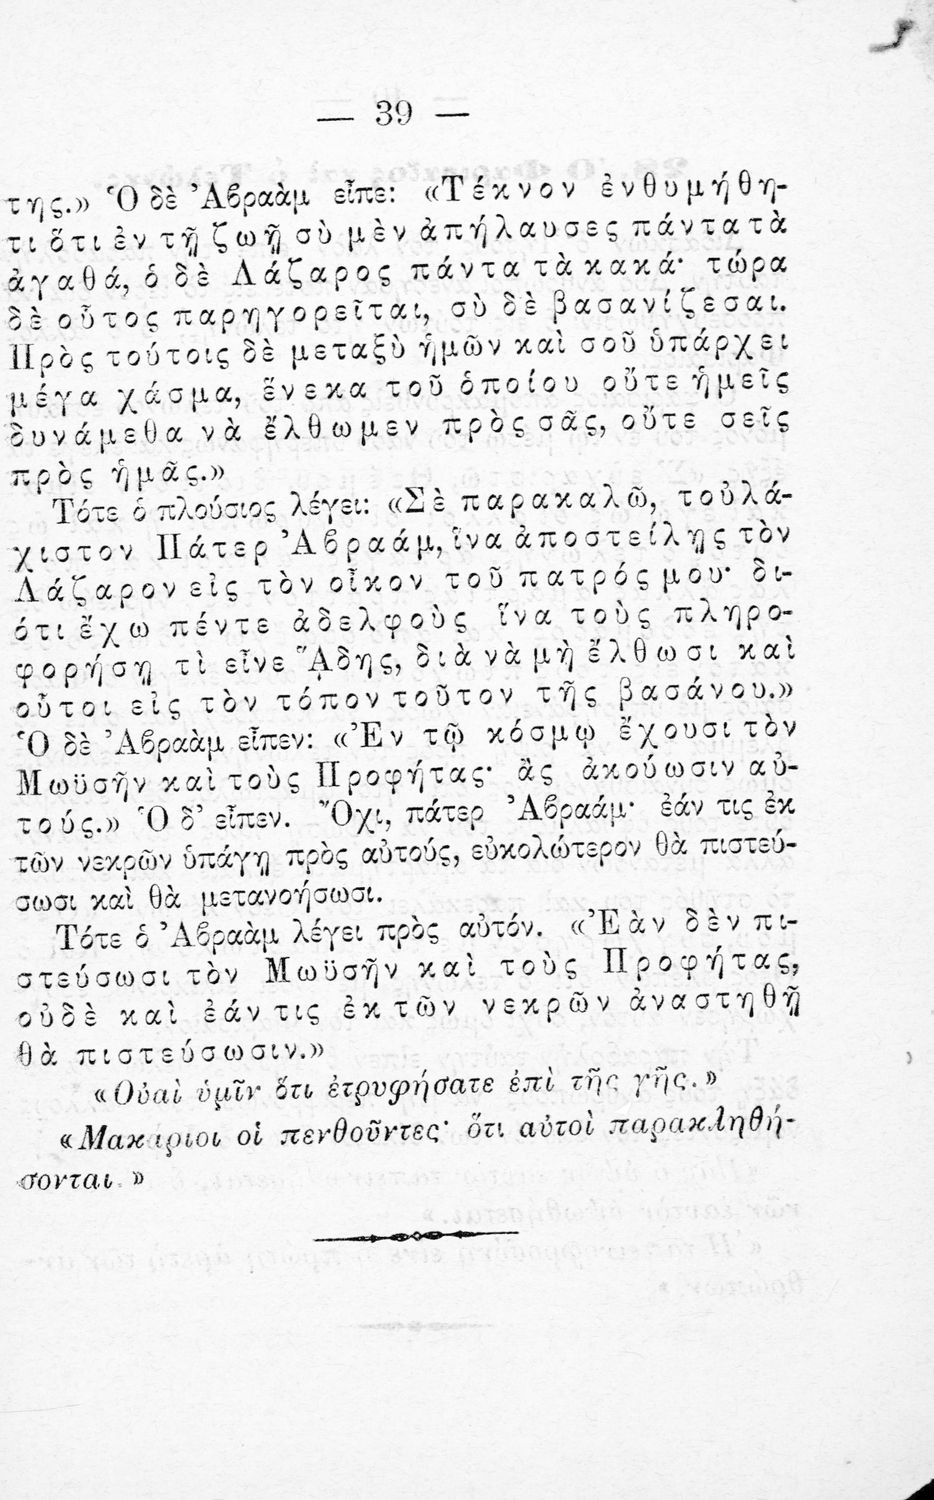 — 39 —
της.» Ὁ δὲ Ἀβραὰμ εἶπε: «Τέκνον ἐνθυμήθη-
τι ὅτι ἐν τῇ ζωῇ σὺ μὲν ἀπήλαυσες πάντα τὰ
ἀγαθά, ὁ δὲ Λάζαρος πάντα τὰ κακά· τώρα
δὲ οὗτος παρηγορεῖται, σὺ δὲ βασανίζεσαι.
Πρὸς τούτοις δὲ μεταξὺ ἡμῶν καὶ σοῦ ὑπάρχει
μέγα χάσμα, ἕνεκα τοῦ ὁποίου οὔτε ἡμεῖς
δυνάμεθα νὰ ἔλθωμεν πρὸς σᾶς, οὔτε σεῖς
πρὸς ἡμᾶς.»
Τότε ὁ πλούσιος λέγει: «Σὲ παρακαλῶ, τοὐλά-
χιστον Πάτερ Ἀβραάμ, ἵνα ἀποστείλῃς τὸν
Λάζαρον εἰς τὸν οἶκον τοῦ πατρός μου· δι-
ότι ἔχω πέντε ἀδελφοὺς ἵνα τοὺς πληρο-
φορήσῃ τὶ εἶνε ᾍδης, διὰ νὰ μὴ ἔλθωσι καὶ
οὗτοι εἰς τὸν τόπον τοῦτον τῆς βασάνου.»
Ὁ δὲ Ἀβραὰμ εἶπεν: «Ἐν τῷ κόσμῳ ἔχουσι τὸν
Μωϋσῆν καὶ τοὺς Προφήτας· ἂς ἀκούωσιν αὐ-
τούς.» Ὁ δ' εἶπεν. Ὄχι, πάτερ Ἀβραάμ· ἐάν τις ἐκ
τῶν νεκρῶν ὑπάγῃ πρὸς αὐτούς, εὐκολώτερον θὰ πιστεύ-
σωσι καὶ θὰ μετανοήσωσι.
Τότε ὁ Ἀβραὰμ λέγει πρὸς αὐτόν. «Ἐὰν δὲν πι-
στεύσωσι τὸν Μωϋσῆν καὶ τοὺς Προφήτας,
οὐδὲ καὶ ἐάν τις ἐκ τῶν νεκρῶν ἀναστηθῇ
θὰ πιστεύσωσιν.»
«Οὐαὶ ὑμῖν ὅτι ἐτρυφήσατε ἐπὶ τῆς γῆς.»
«Μακάριοι οἱ πενθοῦντες· ὅτι αὐτοὶ παρακληθή-
σονται.»